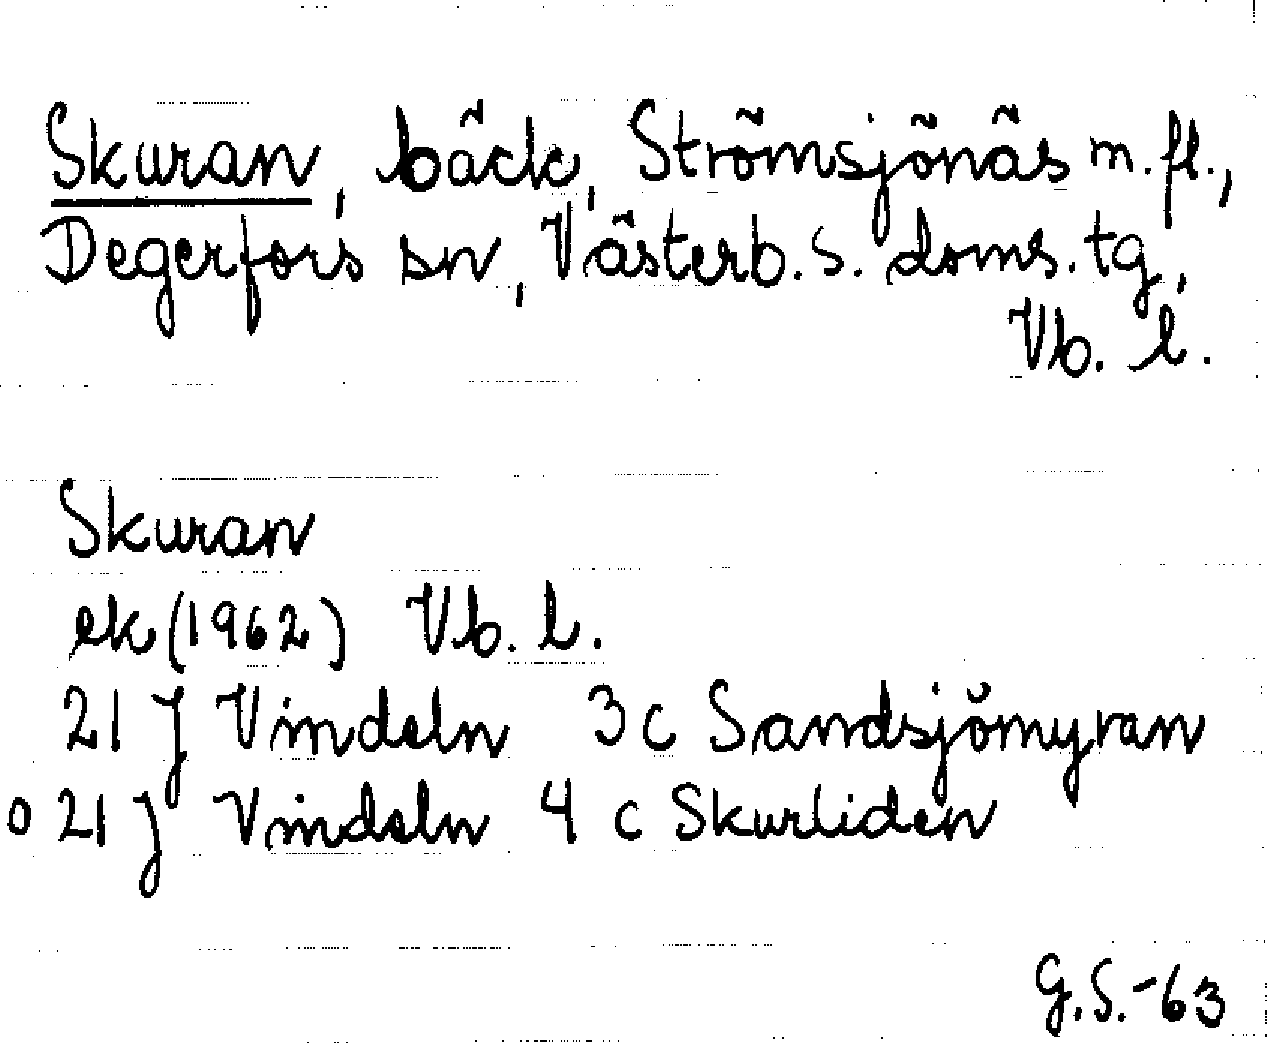 Skuran, bäck, Strömsjönäs m.fl.,
Degerfors sn, Västerb. s. doms. tg,
Vb. l.
Skuran
ek (1962) Vb. l.
21 J Vindeln 3 c Sandsjömyran
o 21 J Vindeln 4 c Skurliden
G.S.-63